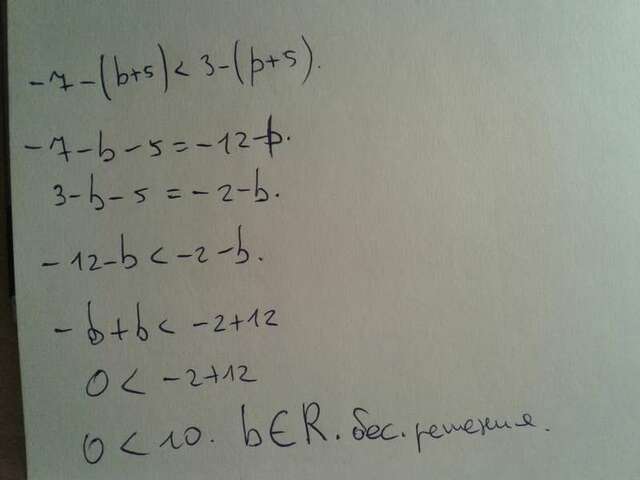 -7-(b+5)<3-(b+5).
-7-b-5=-12-b.
3-b-5=-2-b.
-12-b<-2-b.
-b+b<-2+12
0<-2+12
0<10. b∈R. бес. решения.